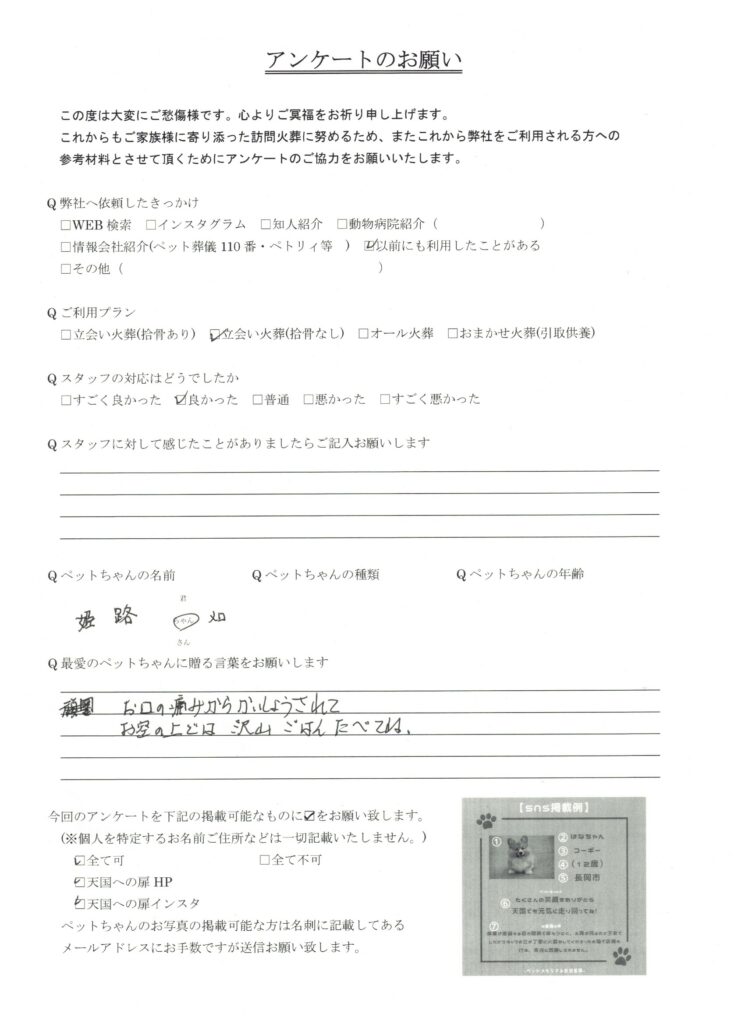 アンケートのお願い
この度は大変にご愁傷様です。心よりご冥福をお祈り申し上げます。
これからもご家族様に寄り添った訪問火葬に努めるため、またこれから弊社をご利用される方への
参考材料とさせて頂くためにアンケートのご協力をお願いいたします。
Q 弊社へ依頼したきっかけ
□WEB 検索 □インスタグラム □知人紹介 □動物病院紹介（ ）
□情報会社紹介(ペット葬儀 110 番・ペトリィ等 ) ☑以前にも利用したことがある
□その他（ ）
Q ご利用プラン
□立会い火葬(拾骨あり) ☑立会い火葬(拾骨なし) □オール火葬 □おまかせ火葬(引取供養)
Q スタッフの対応はどうでしたか
□すごく良かった ☑良かった □普通 □悪かった □すごく悪かった
Q スタッフに対して感じたことがありましたらご記入お願いします
Q ペットちゃんの名前 Q ペットちゃんの種類 Q ペットちゃんの年齢
君
姫路 ちゃん
さん
Q 最愛のペットちゃんに贈る言葉をお願いします
お口の痛みからかいしょうされて
お空の上では 沢山 ごはん たべてね、
今回のアンケートを下記の掲載可能なものに☑をお願い致します。
(※個人を特定するお名前ご住所などは一切記載いたしません。)
☑全て可 □全て不可
☑天国への扉 HP
☑天国への扉インスタ
ペットちゃんのお写真の掲載可能な方は名刺に記載してある
メールアドレスにお手数ですが送信お願い致します。
【sns掲載例】
① ② はなちゃん
③ コーギー
④ (12歳)
⑤ 長岡市
⑥ たくさんの笑顔をありがとう
天国でも元気に走り回ってね!
⑦